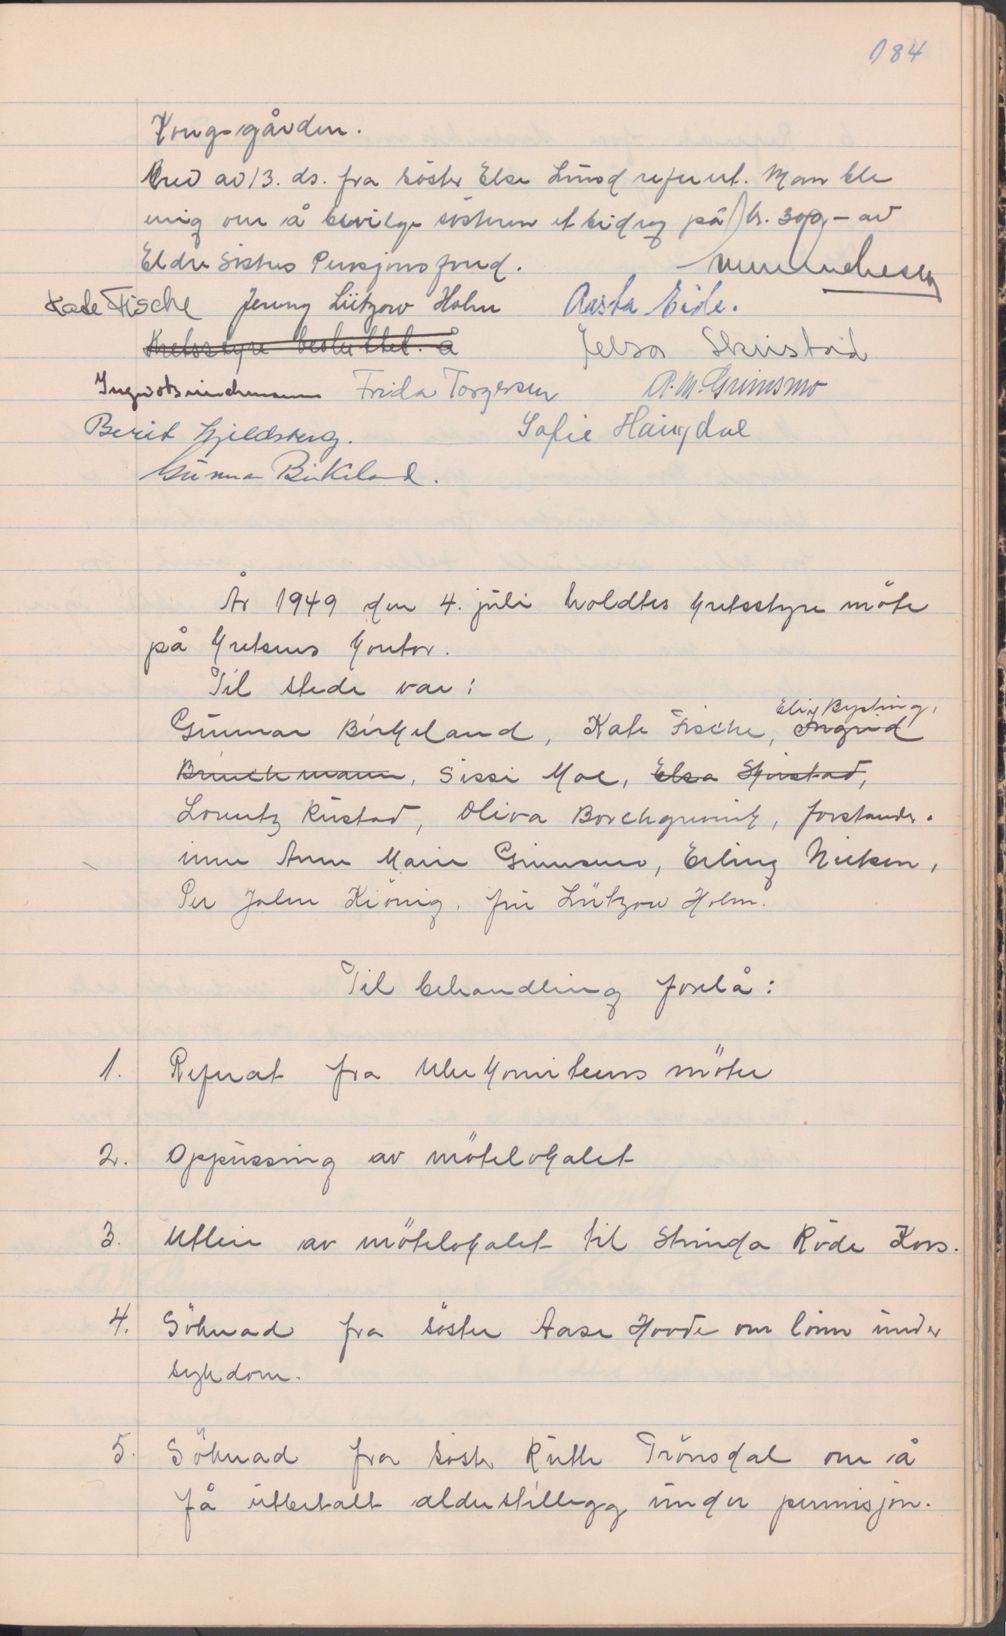 184
Kongsgården.
Brev av 13. ds. fra söster Else Lund referert. Man ble
enig om å bevilge sösteren et bidrag på kr. 300,- av
Eldre Söstres Pensjonsfond.
Kate Fische Jenny Lützow Holm Aasta Eide.
Kretsstyre besluttet å
Skirstad
Frida Torgersen A.M. Grimsmo
Berit Gjeldsberg. Sofie Haugdal
Gunnar Birkeland.
År 1949 den 4. juli holdtes kretsstyre möte
på kretsens kontor.
Til stede var:
Elin Bysting,
Gunnar Birkeland, Kate Fische, Ingrid
Brinchmann, Sissi Moe, Elsa Skirstad,
Lorentz Rustad, Oliva Borchgrevink, forstander-
inne Anne Marie Grimsmo, Erling Nielsen,
Per John Kiönig, frü Lützow Holm.
Til behandling forelå:
1. Referat fra Ulike Komiteens möter
2. Oppussing av mötelokalet
3. Utleie av mötelokalet til Strinda Röde Kors.
4. Söknad fra söster Aase Hovde om lönn under
sykdom.
5. Söknad fra söster Ruth Trönsdal om å
få utbetalt alderstillegg under permisjon.